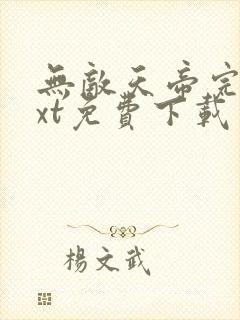 無敵天帝完
xt免費下載
楊文武